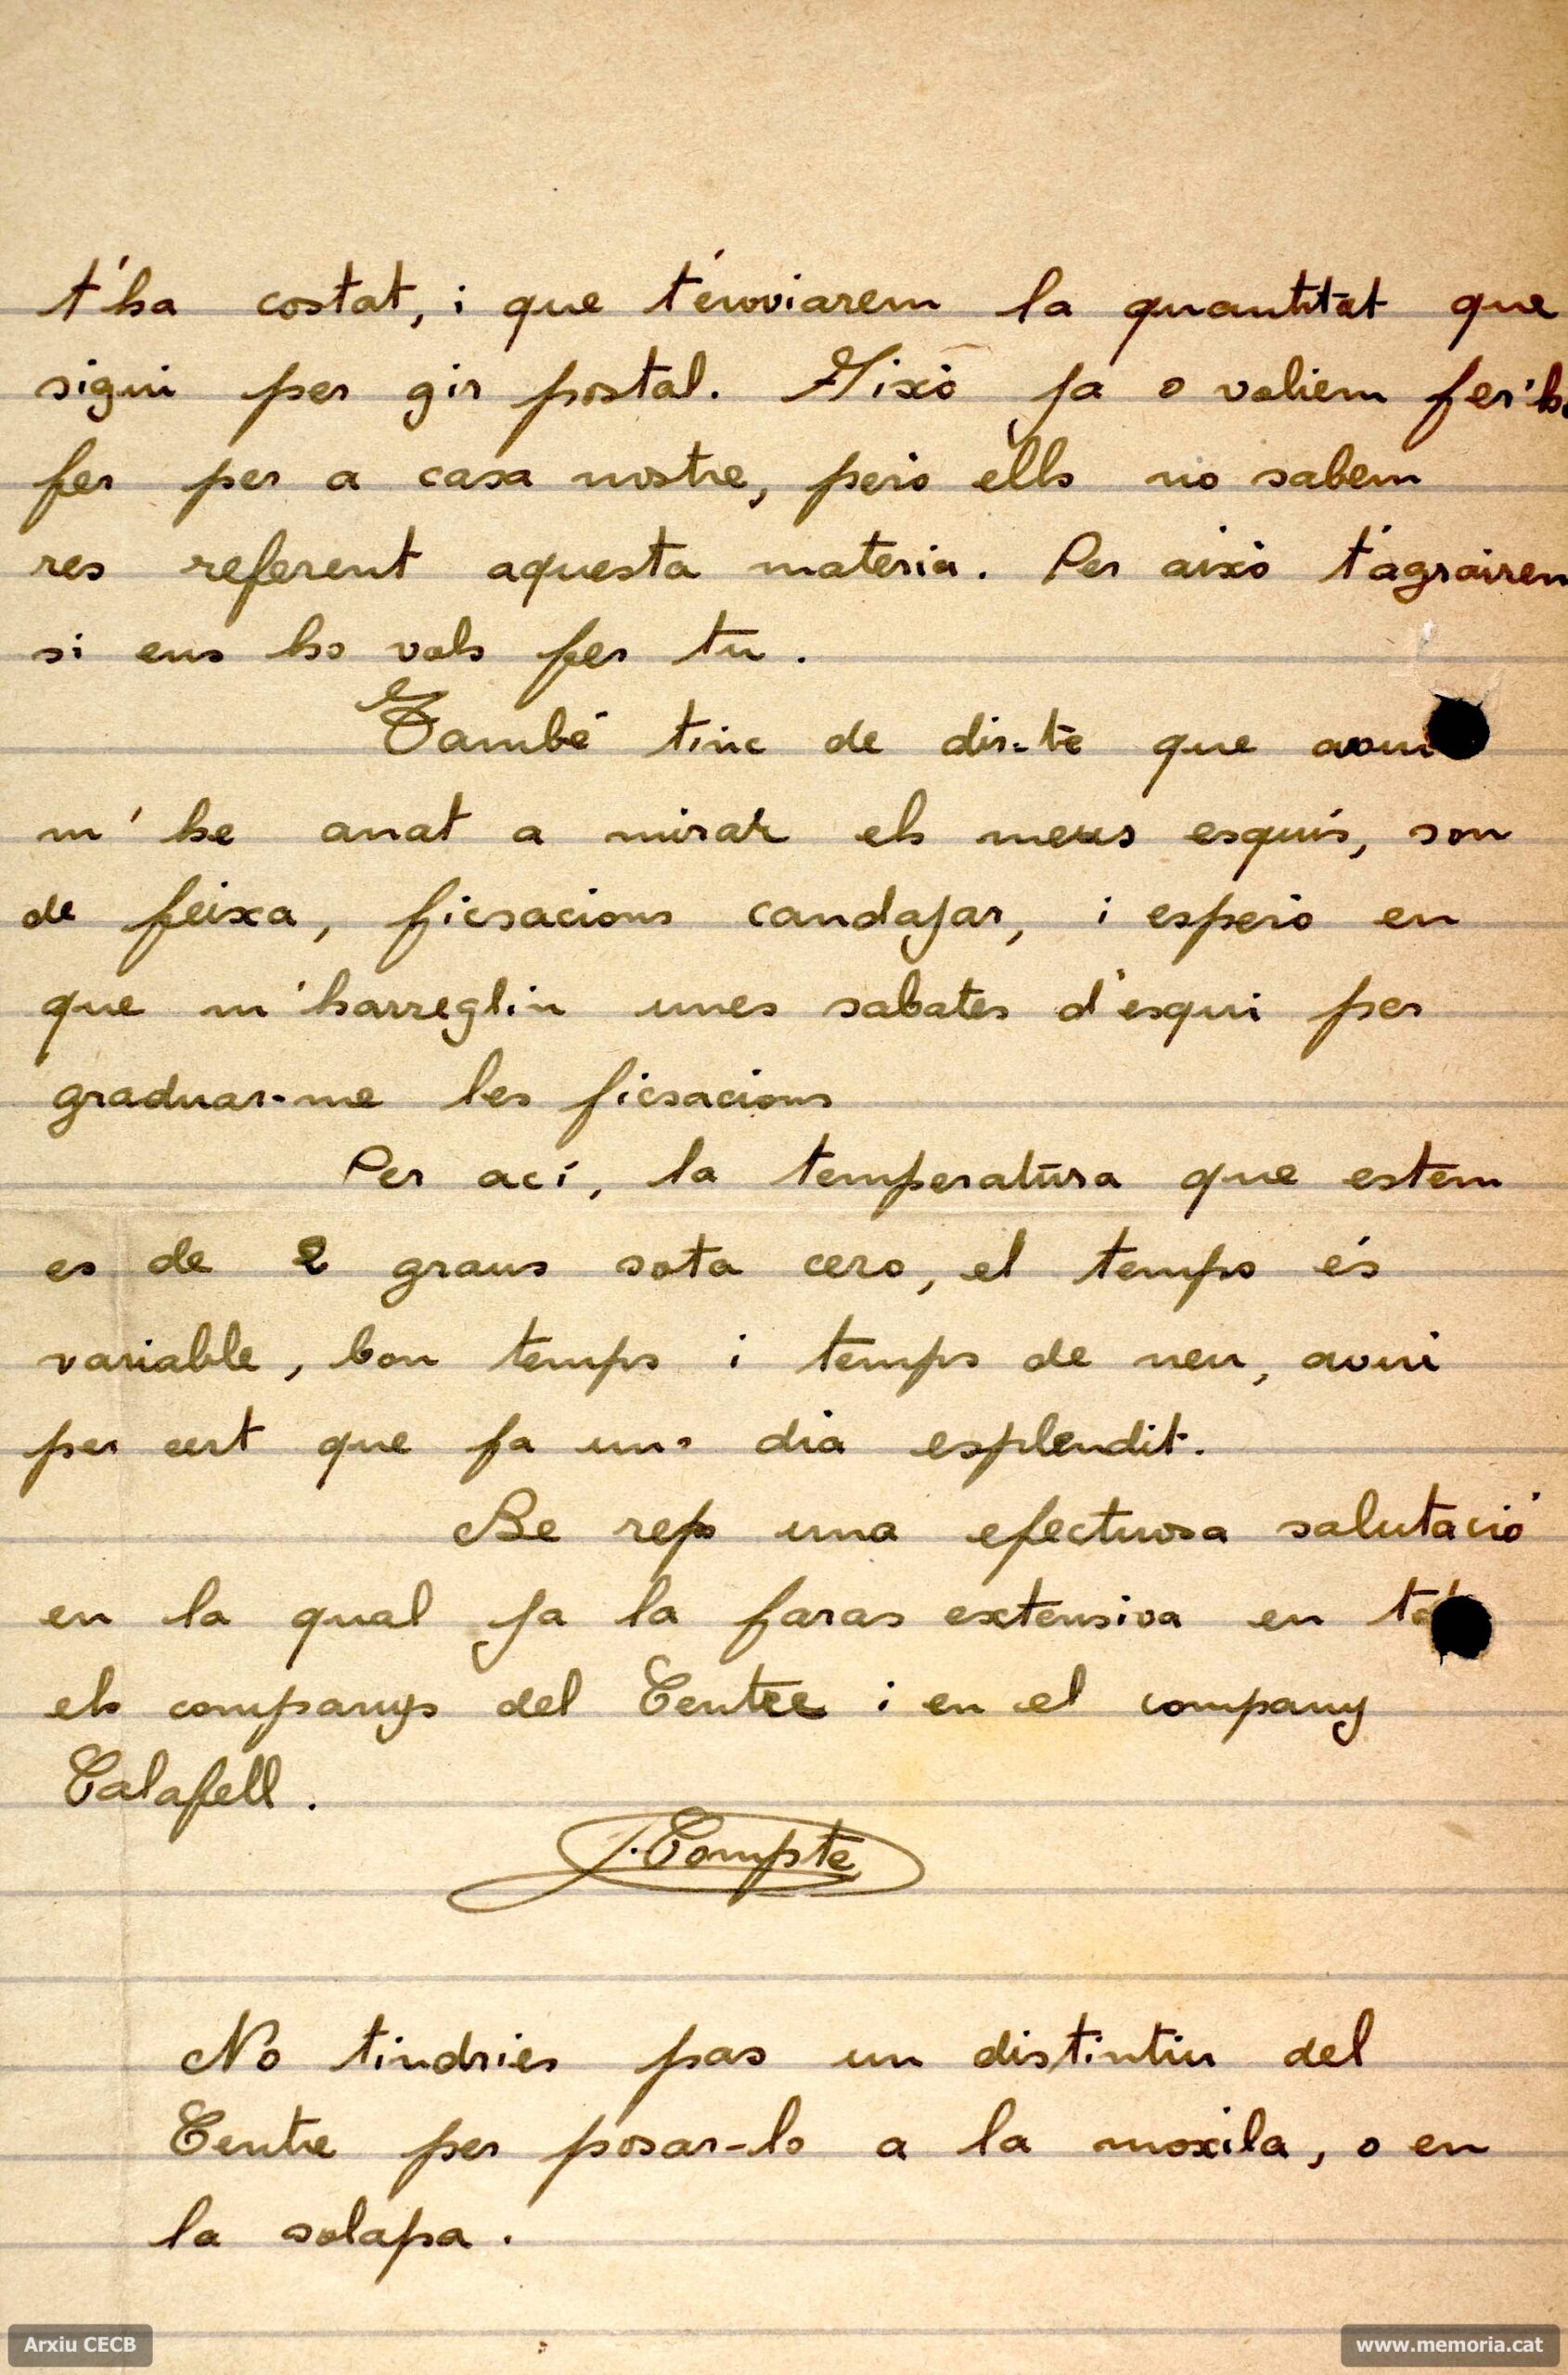 t'ha costat, i que t'enviarem la quantitat que
sigui per gir postal. Aixó ja o voliem fer'h
fer per a casa nostre, peró ells no sabem
res referent aquesta materia. Per aixó t'agrairem
si ens ho vols fer tu.
També tinc de dir-te que avui
m'he anat a mirar els meus esquís, son
de feixa, ficsacions candajar, i espero en
que m'harreglin unes sabates d'esqui per
graduar-me les ficsacions
Per ací, la temperatura que estem
es de 2 graus sota cero, el temps és
variable, bon temps i temps de neu, avui
per cert que fa un dia esplendit.
Be reps una efectuosa salutació
en la qual ja la faras extensiva en
els companys del Centre i en el company
Calafell.
J. Compte
No tindries pas un distintiu del
Centre per posar-lo a la moxila, o en
la solapa.
Arxiu CECB
www.memoria.cat